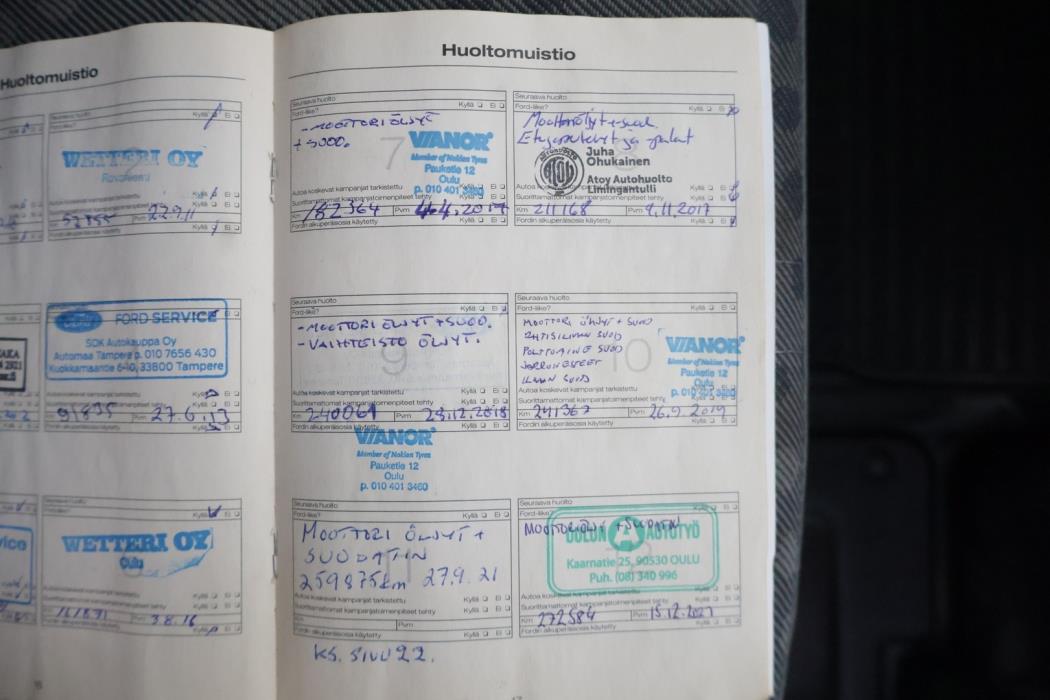 Huoltomuistio
WETTERI OY
Rovaniemi
Km 52755 22.9.11
Fordin alkuperäisosia käytetty Kyllä Ei
FORD SERVICE
SOK Autokauppa Oy
Automaa Tampere p. 010 7656 430
Kuokkamaantie 6-10, 33800 Tampere
91835 Pvm 27.6.13
Fordin alkuperäisosia käytetty Kyllä Ei
WETTERI OY
Oulu
Autoa koskevat kampanjat tarkistettu Kyllä Ei
Pvm 3.8.16
Fordin alkuperäisosia käytetty Kyllä Ei
Huoltomuistio
Seuraava huolto
Ford-liike? Kyllä Ei
- MOOTTORI ÖLJYT
+ SUOD.
7
VIANOR
Member of Nokian Tyres
Pauketie 12
Oulu
p. 010 401 3460
Autoa koskevat kampanjat tarkistettu
Suorittamattomat kampanjatoimenpiteet tehty
Km 182364 Pvm 4.4.2017
Fordin alkuperäisosia käytetty Kyllä Ei
Seuraava huolto
Ford-liike? Kyllä Ei
Moottoriöljyt + suod.
Etujarrulevyt ja palat
AUTOHUOLTO
ATOY
Juha
Ohukainen
Atoy Autohuolto
Limingantulli
Autoa koskevat kampanjat tarkistettu Kyllä Ei
Suorittamattomat kampanjatoimenpiteet tehty Kyllä Ei
Km 211168 Pvm 9.11.2017
Fordin alkuperäisosia käytetty Kyllä Ei
Seuraava huolto
Ford-liike? Kyllä Ei
- MOOTTORI ÖLJYT + SUOD.
- VAIHTEISTO ÖLJYT.
9
Autoa koskevat kampanjat tarkistettu Kyllä Ei
Suorittamattomat kampanjatoimenpiteet tehty Kyllä Ei
Km 240061 Pvm 28.12.2018
Fordin alkuperäisosia käytetty Kyllä Ei
VIANOR
Member of Nokian Tyres
Pauketie 12
Oulu
p. 010 401 3460
Seuraava huolto
Ford-liike? Kyllä Ei
MOOTTORI ÖLJYT + SUOD
RAITISILMAN SUOD
POLTTOAINE SUOD
JARRUNESTEET
ILMAN SUOD
10
VIANOR
Member of Nokian Tyres
Pauketie 12
Oulu
p. 010 401 3460
Autoa koskevat kampanjat tarkistettu
Suorittamattomat kampanjatoimenpiteet tehty Kyllä Ei
Km 241367 Pvm 26.9 2019
Fordin alkuperäisosia käytetty Kyllä Ei
Seuraava huolto
Ford-liike? Kyllä Ei
MOOTTORI ÖLJYT +
SUODATIN
259875km 27.9.21
Autoa koskevat kampanjat tarkistettu Kyllä Ei
Suorittamattomat kampanjatoimenpiteet tehty Kyllä Ei
Km Pvm
Fordin alkuperäisosia käytetty Kyllä Ei
KS. SIVU 22.
Seuraava huolto
Ford-liike? Kyllä Ei
MOOTTORIÖLJY + SUODATIN
OULUN A AUTOTYÖ
Kaarnatie 25, 90530 OULU
Puh. (08) 340 996
Autoa koskevat kampanjat tarkistettu Kyllä Ei
Suorittamattomat kampanjatoimenpiteet tehty Kyllä Ei
Km 272584 Pvm 15.12.2021
Fordin alkuperäisosia käytetty Kyllä Ei